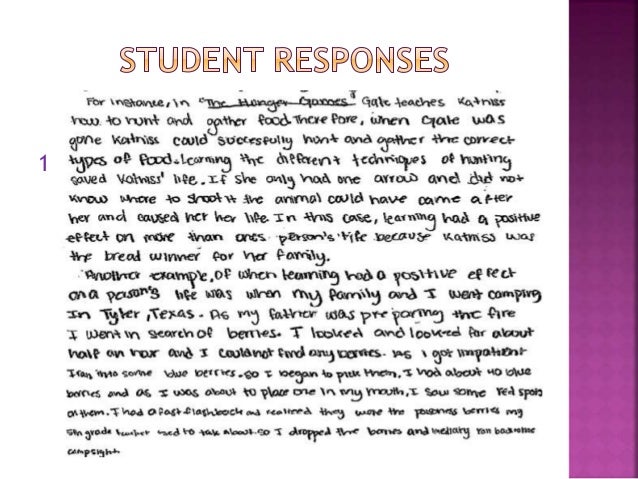 STUDENT RESPONSES
1
For instance, in "The Hunger Games" Gale teaches Katniss
how to hunt and gather food. There fore, when Gale was
gone Katniss could succesfully hunt and gather the correct
types of food. Learning the different techniques of hunting
saved Katniss' life. If she only had one arrow and did not
know where to shoot it the animal could have came after
her and caused her her life. In this case, learning had a positive
effect on more than ones person's life because Katniss was
the bread winner for her family.
Another example, of when learning had a positive effect
on a person's life was when my family and I went camping
In Tyler, Texas. As my father was preparing the fire
I went in search of berries. I looked and looked for about
half an hour and I couldnot find any berries. As I got impatient
I ran into some blue berries. so I began to pick them. I had about 40 blue
berries and as I was about to place one in my mouth, I saw some red spots
on them. I had a fast flashback and realized they were the poisness berries my
5th grade teacher used to talk about. so I dropped the berries and ran back to the
campsight.